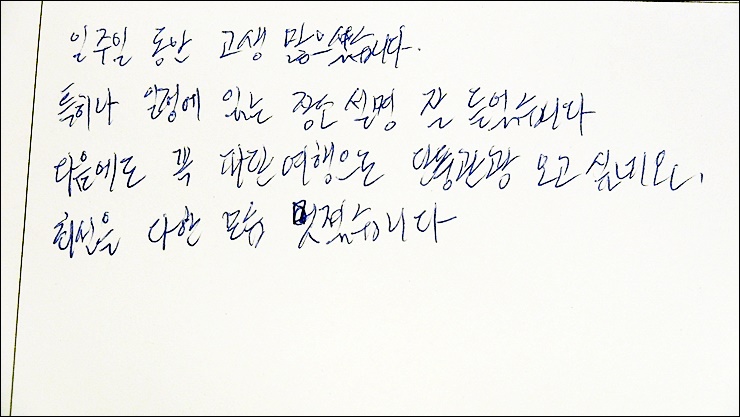 일주일 동안 고생 많으셨습니다.
특히나 일정에 있는 장소 설명 잘 들었습니다
다음에도 꼭 파란여행으로 단동관광 오고 싶네요.
최선을 다한 모습 멋졌습니다